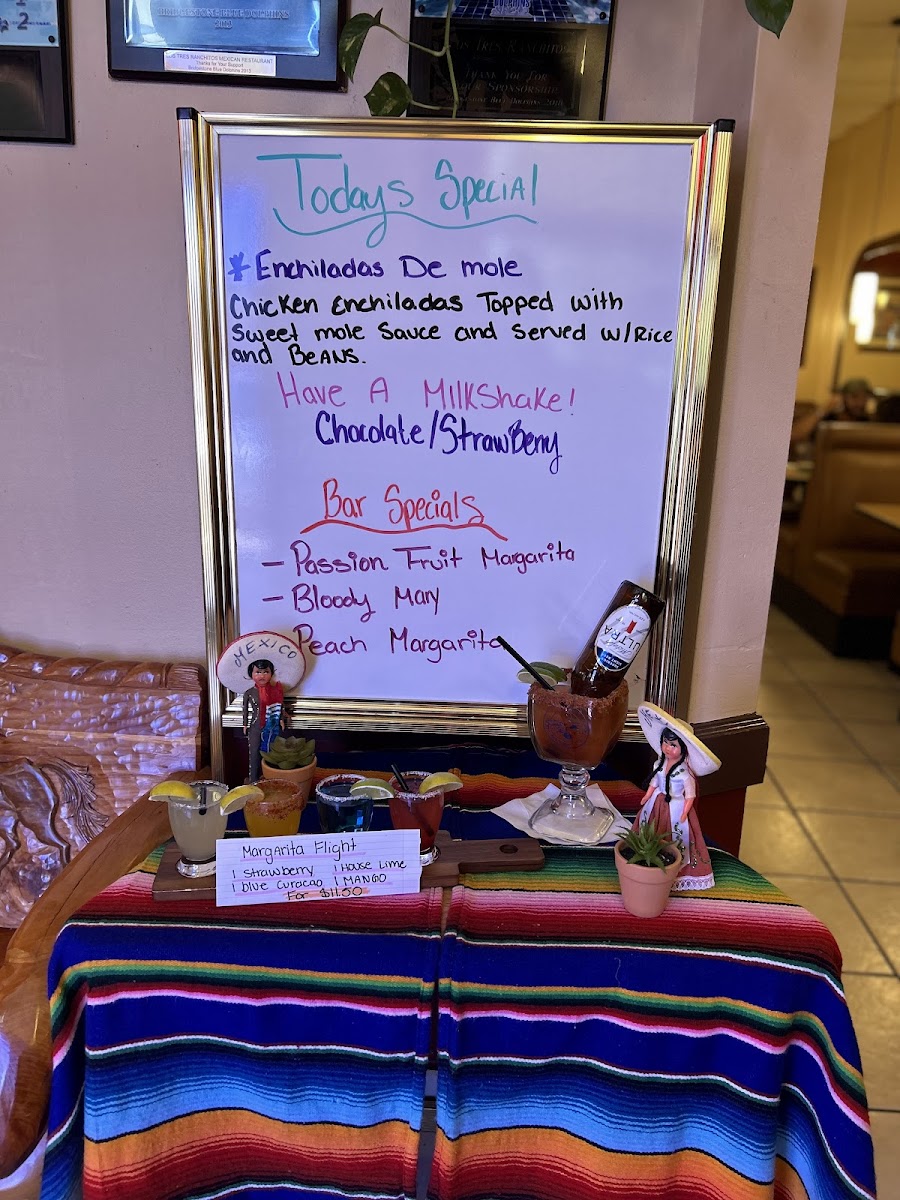 2022
LOS TRES RANCHITOS MEXICAN RESTAURANT
Thanks for Your Support
Brushy Blue Dolphins
THANK YOU FOR
Todays Special
* Enchiladas De mole
Chicken Enchiladas Topped with
Sweet mole Sauce and Served w/Rice
and Beans.
Have A Milkshake!
Chocolate/StrawBerry
Bar Specials
- Passion Fruit Margarita
- Bloody Mary
Peach Margarita
MEXICO
ULTRA
Margarita Flight
1 Strawberry 1 House Lime
1 blue Curacao 1 MANGO
For $11.50